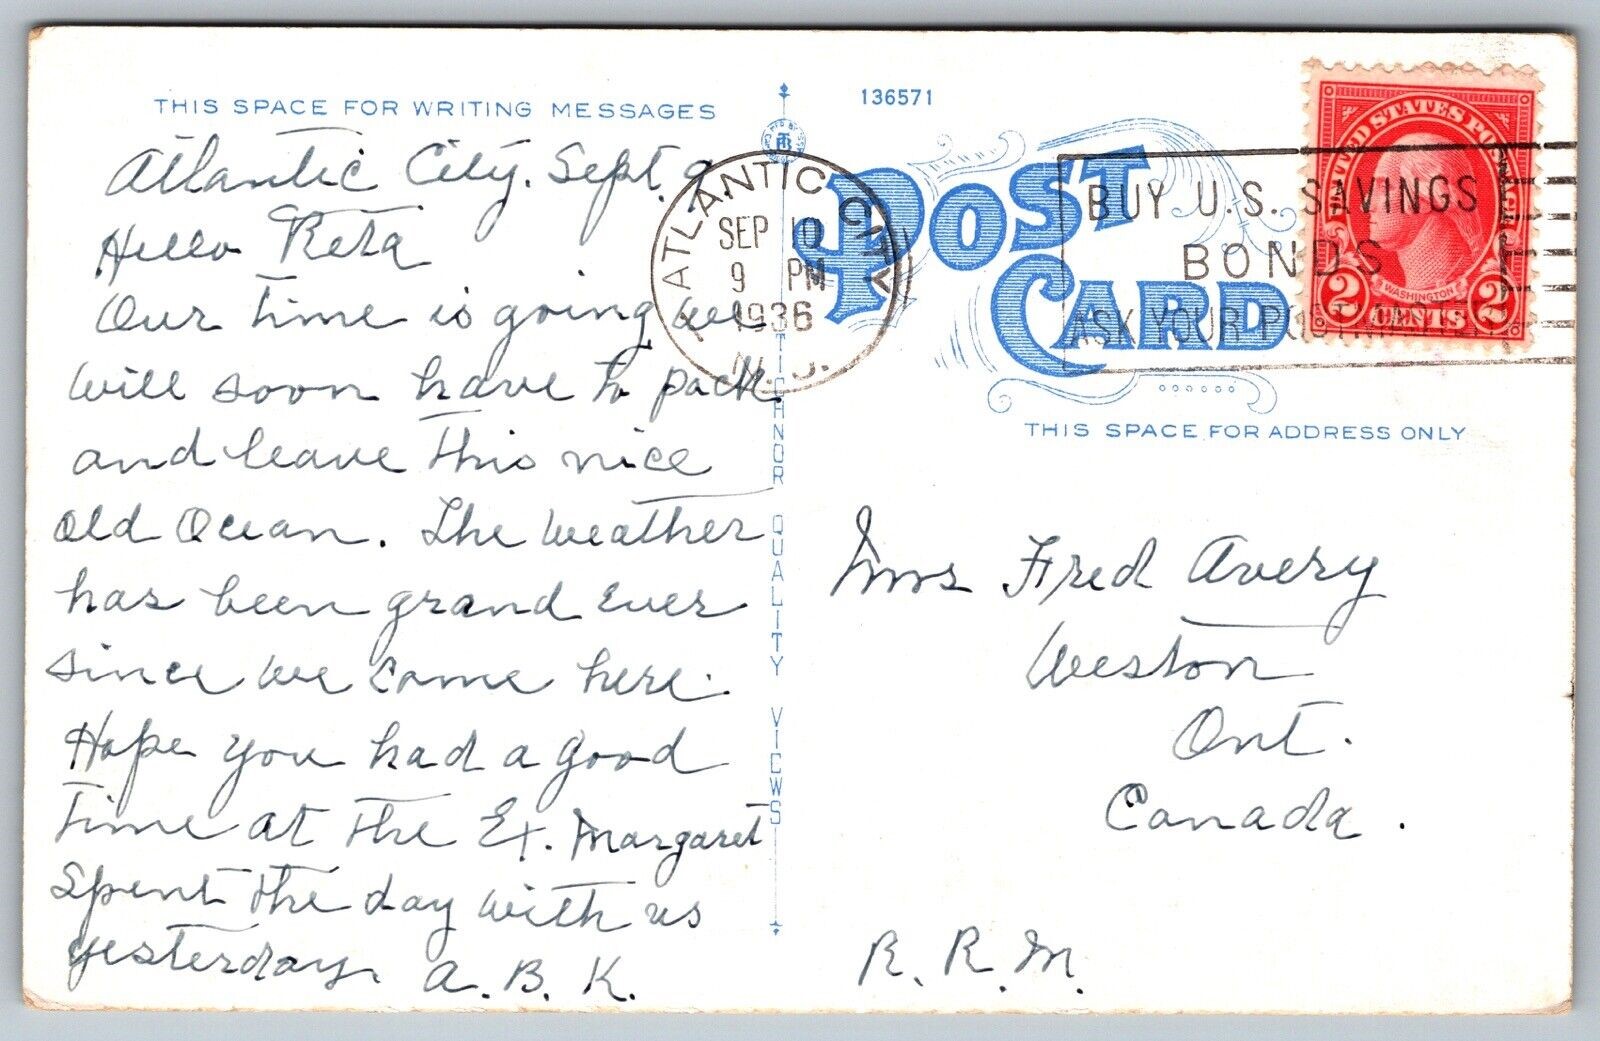 THIS SPACE FOR WRITING MESSAGES
Atlantic City. Sept. 9
Hello Reta
Our time is going we
will soon have to pack
and leave this nice
old Ocean. The weather
has been grand ever
since we came here.
Hope you had a good
time at the Ex. Margaret
spent the day with us
yesterday. A. B. K.
TICHNOR QUALITY VIEWS
136571
POST CARD
ATLANTIC CITY
SEP 10
9 PM
1936
N. J.
BUY U.S. SAVINGS
BONDS
ASK YOUR POSTMASTER
UNITED STATES POSTAGE
WASHINGTON
2 CENTS 2
THIS SPACE FOR ADDRESS ONLY
Mrs Fred Avery
Weston
Ont.
Canada.
R. R. M.